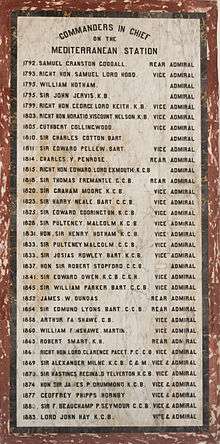 COMMANDERS IN CHIEF
ON THE
MEDITERRANEAN STATION
1792. SAMUEL CRANSTON GOODALL REAR ADMIRAL
1793. RIGHT HON. SAMUEL LORD HOOD. VICE ADMIRAL
1795. WILLIAM HOTHAM. ADMIRAL
1795. SIR JOHN JERVIS K.B. ADMIRAL
1799. RIGHT HON. GEORGE LORD KEITH, K.B. VICE ADMIRAL
1803. RIGHT HON. HORATIO VISCOUNT NELSON K.B. VICE ADMIRAL
1805. CUTHBERT COLLINGWOOD. VICE ADMIRAL
1810. SIR CHARLES COTTON BART. ADMIRAL
1811. SIR EDWARD PELLEW. BART. VICE ADMIRAL
1814. CHARLES V. PENROSE. REAR ADMIRAL
1815. RIGHT HON. EDWARD LORD EXMOUTH K.C.B. VICE ADMIRAL
1818. SIR THOMAS FREMANTLE G.C.B. REAR ADMIRAL
1820. SIR GRAHAM MOORE K.C.B. VICE ADMIRAL
1823. SIR HARRY NEALE BART. G.C.B. VICE ADMIRAL
SIR EDWARD CODRINGTON K.C.B. VICE ADMIRAL
1828. SIR PULTENEY MALCOLM K.C.B. VICE ADMIRAL
1831. HON. SIR HENRY HOTHAM K.C.B. VICE ADMIRAL
1833. SIR PULTENEY MALCOLM G.C.B. VICE ADMIRAL
1833. SIR JOSIAS ROWLEY BART. K.C.B. VICE ADMIRAL
1837. HON. SIR ROBERT STOPFORD G.C.B. ADMIRAL
1841. SIR EDWARD OWEN K.C.B. VICE ADMIRAL
1845. SIR WILLIAM PARKER BART. G.C.B. VICE ADMIRAL
1852. JAMES W. DUNDAS. REAR ADMIRAL
1854. SIR EDMOND LYONS BART. G.C.B. REAR ADMIRAL
1858. ARTHUR FANSHAWE C.B. VICE ADMIRAL
1860. WILLIAM FANSHAWE MARTIN. VICE ADMIRAL
1863. ROBERT SMART K.H. REAR ADMIRAL
RIGHT HON. LORD CLARENCE PAGET, P.C. C.B. VICE ADMIRAL
1869. SIR ALEXANDER MILNE K.C.B. VICE ADMIRAL
SIR HASTINGS REGINALD YELVERTON K.C.B. VICE ADMIRAL
1874. HON. SIR JAMES DRUMMOND K.C.B. VICE ADMIRAL
1877. GEOFFREY PHIPPS HORNBY VICE ADMIRAL
1880. SIR F. BEAUCHAMP P. SEYMOUR G.C.B. VICE ADMIRAL
1883. LORD JOHN HAY K.C.B. VICE ADMIRAL